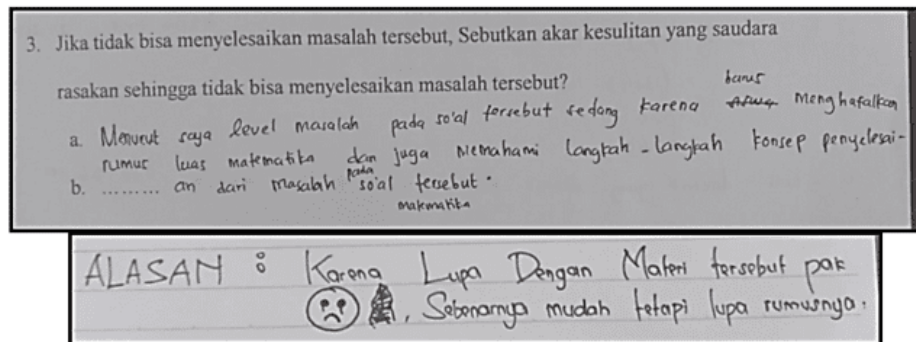 3. Jika tidak bisa menyelesaikan masalah tersebut, Sebutkan akar kesulitan yang saudara
rasakan sehingga tidak bisa menyelesaikan masalah tersebut?
harus
a. Menurut saya level masalah pada so'al tersebut sedang karena menghafalkan
rumus luas matematika dan juga memahami langkah-langkah konsep penyelesai-
b. .......... an dari masalah pada so'al tersebut.
matematika
ALASAN : Karena Lupa Dengan Materi tersebut pak
, Sebenarnya mudah tetapi lupa rumusnya.